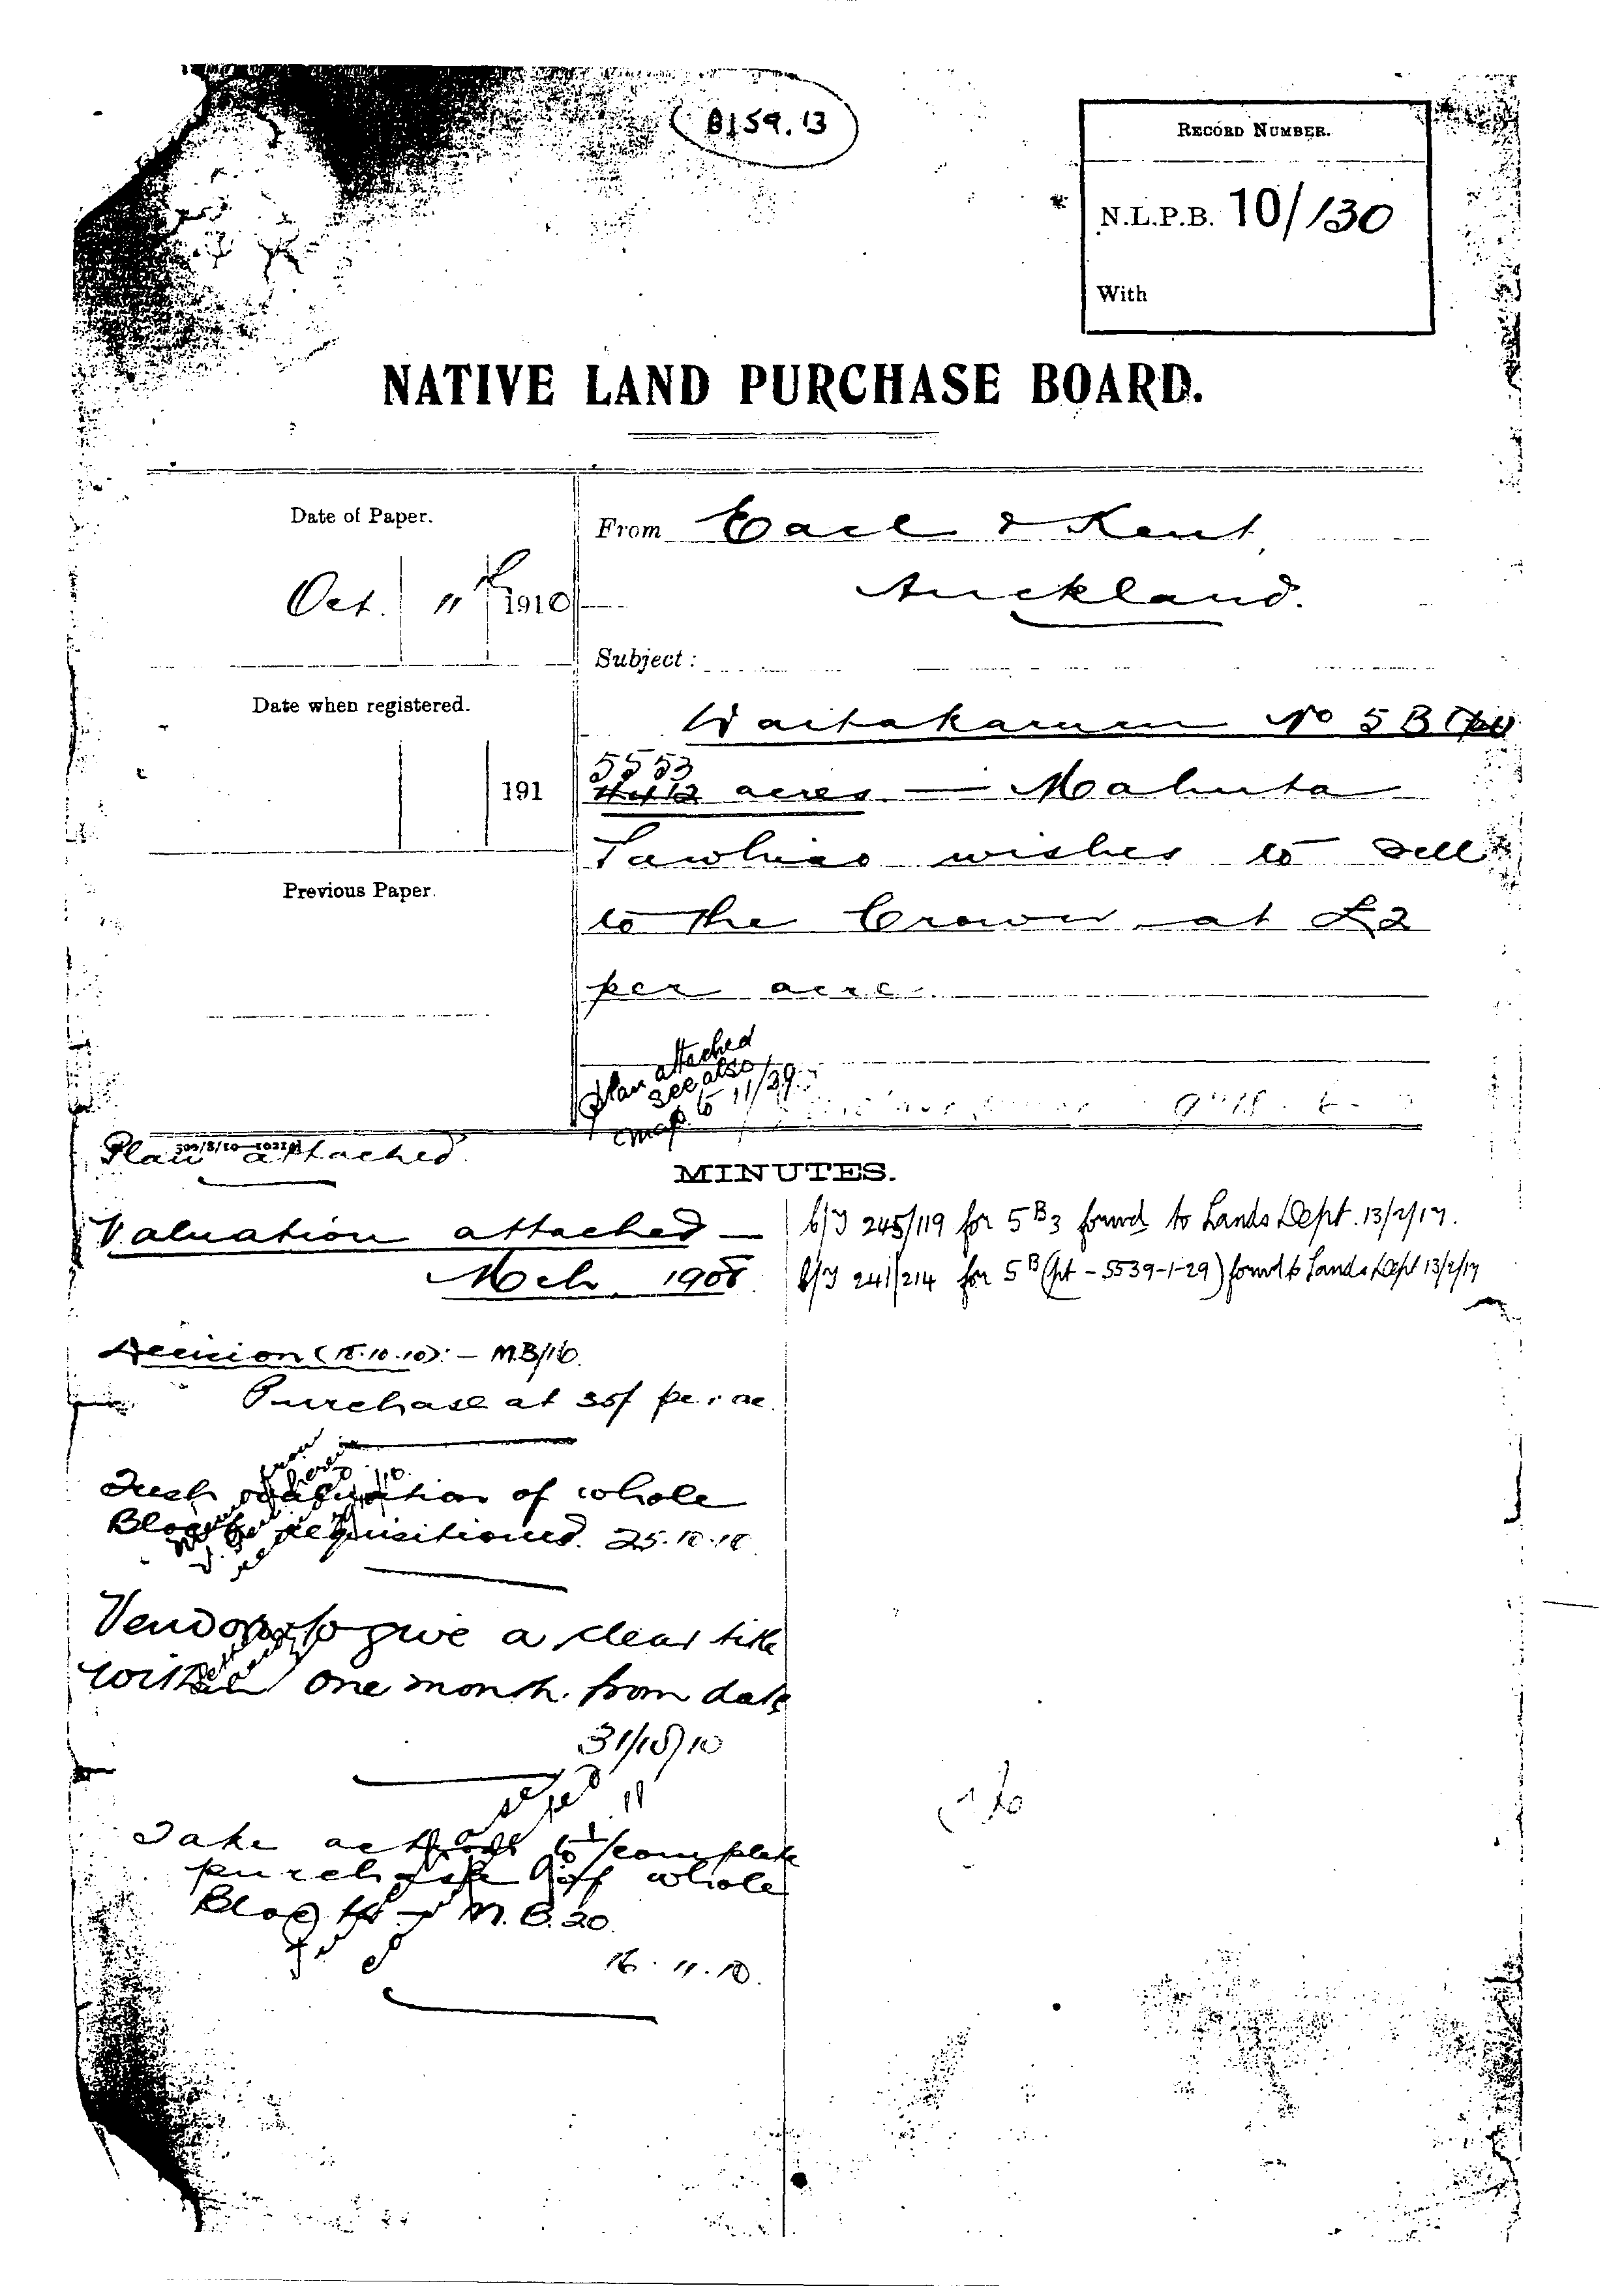 B159.13
RECORD NUMBER.
N.L.P.B. 10/130
With
NATIVE LAND PURCHASE BOARD.
Date of Paper.
Oct. 11th 1910
From Earl & Kent,
Auckland.
Subject:
Date when registered.
191
Waitakaruru No 5 B (pt)
5553
4412 acres — Mahuta
Tawhiao wishes to sell
to the Crown at £2
per acre.
Previous Paper.
Plan attached
see also
map to 11/29.
Plan attached
MINUTES.
Valuation attached —
Mch. 1908
Decision (18.10.10): — M.B/16.
Purchase at 35/ per ac.
Fresh valuation of whole
Block requisitioned. 25.10.10.
Vendor to give a clear title
within one month from date
31/10/10
Take action to complete
purchase of whole
Block — M.B. 20.
16.11.10.
C/T 245/119 for 5B3 forwd to Lands Dept. 13/2/17.
C/T 241/214 for 5B (pt - 5539-1-29) forwd to Lands Dept 13/2/17